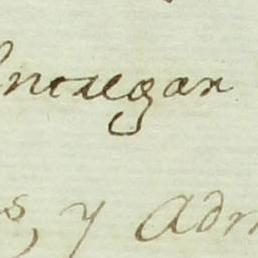 entregar
s, y Adm